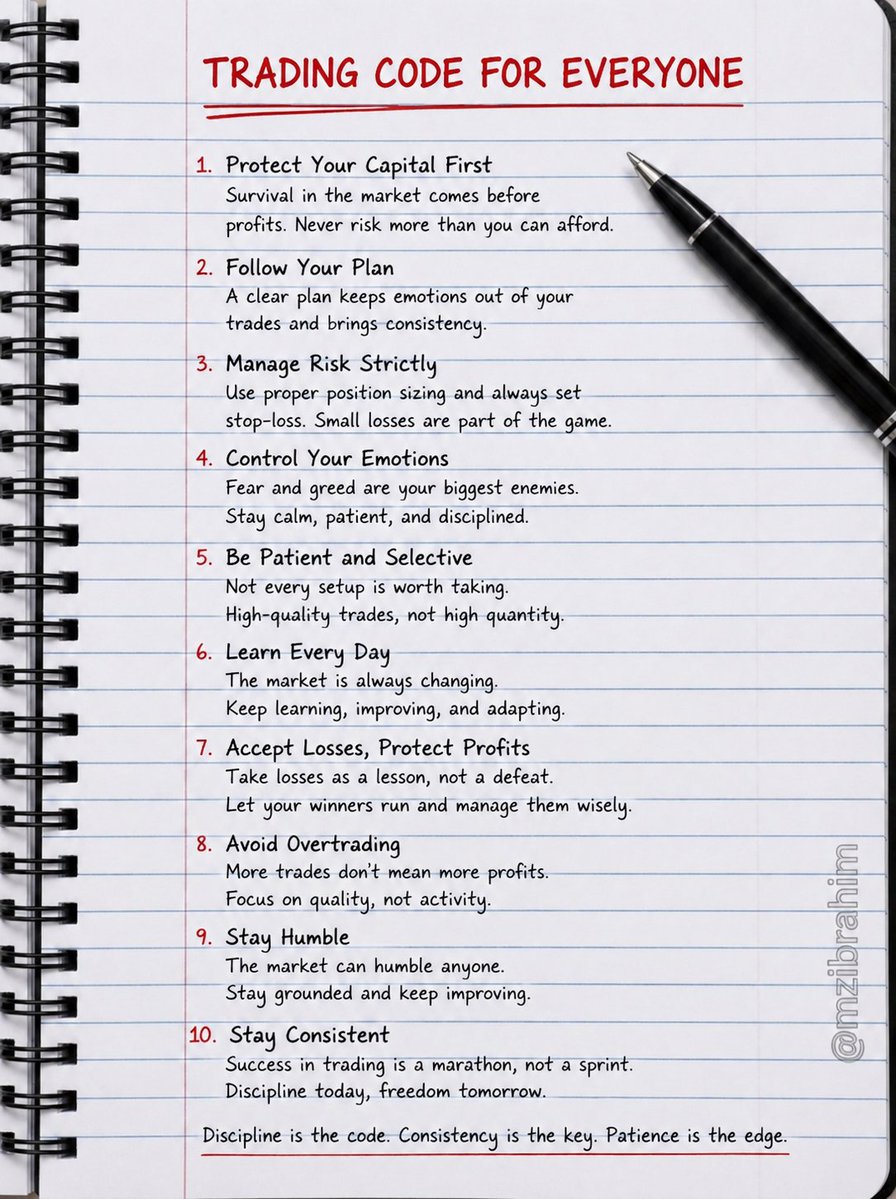 TRADING CODE FOR EVERYONE
1. Protect Your Capital First
Survival in the market comes before
profits. Never risk more than you can afford.
2. Follow Your Plan
A clear plan keeps emotions out of your
trades and brings consistency.
3. Manage Risk Strictly
Use proper position sizing and always set
stop-loss. Small losses are part of the game.
4. Control Your Emotions
Fear and greed are your biggest enemies.
Stay calm, patient, and disciplined.
5. Be Patient and Selective
Not every setup is worth taking.
High-quality trades, not high quantity.
6. Learn Every Day
The market is always changing.
Keep learning, improving, and adapting.
7. Accept Losses, Protect Profits
Take losses as a lesson, not a defeat.
Let your winners run and manage them wisely.
8. Avoid Overtrading
More trades don't mean more profits.
Focus on quality, not activity.
9. Stay Humble
The market can humble anyone.
Stay grounded and keep improving.
10. Stay Consistent
Success in trading is a marathon, not a sprint.
Discipline today, freedom tomorrow.
Discipline is the code. Consistency is the key. Patience is the edge.
@mzibrahim